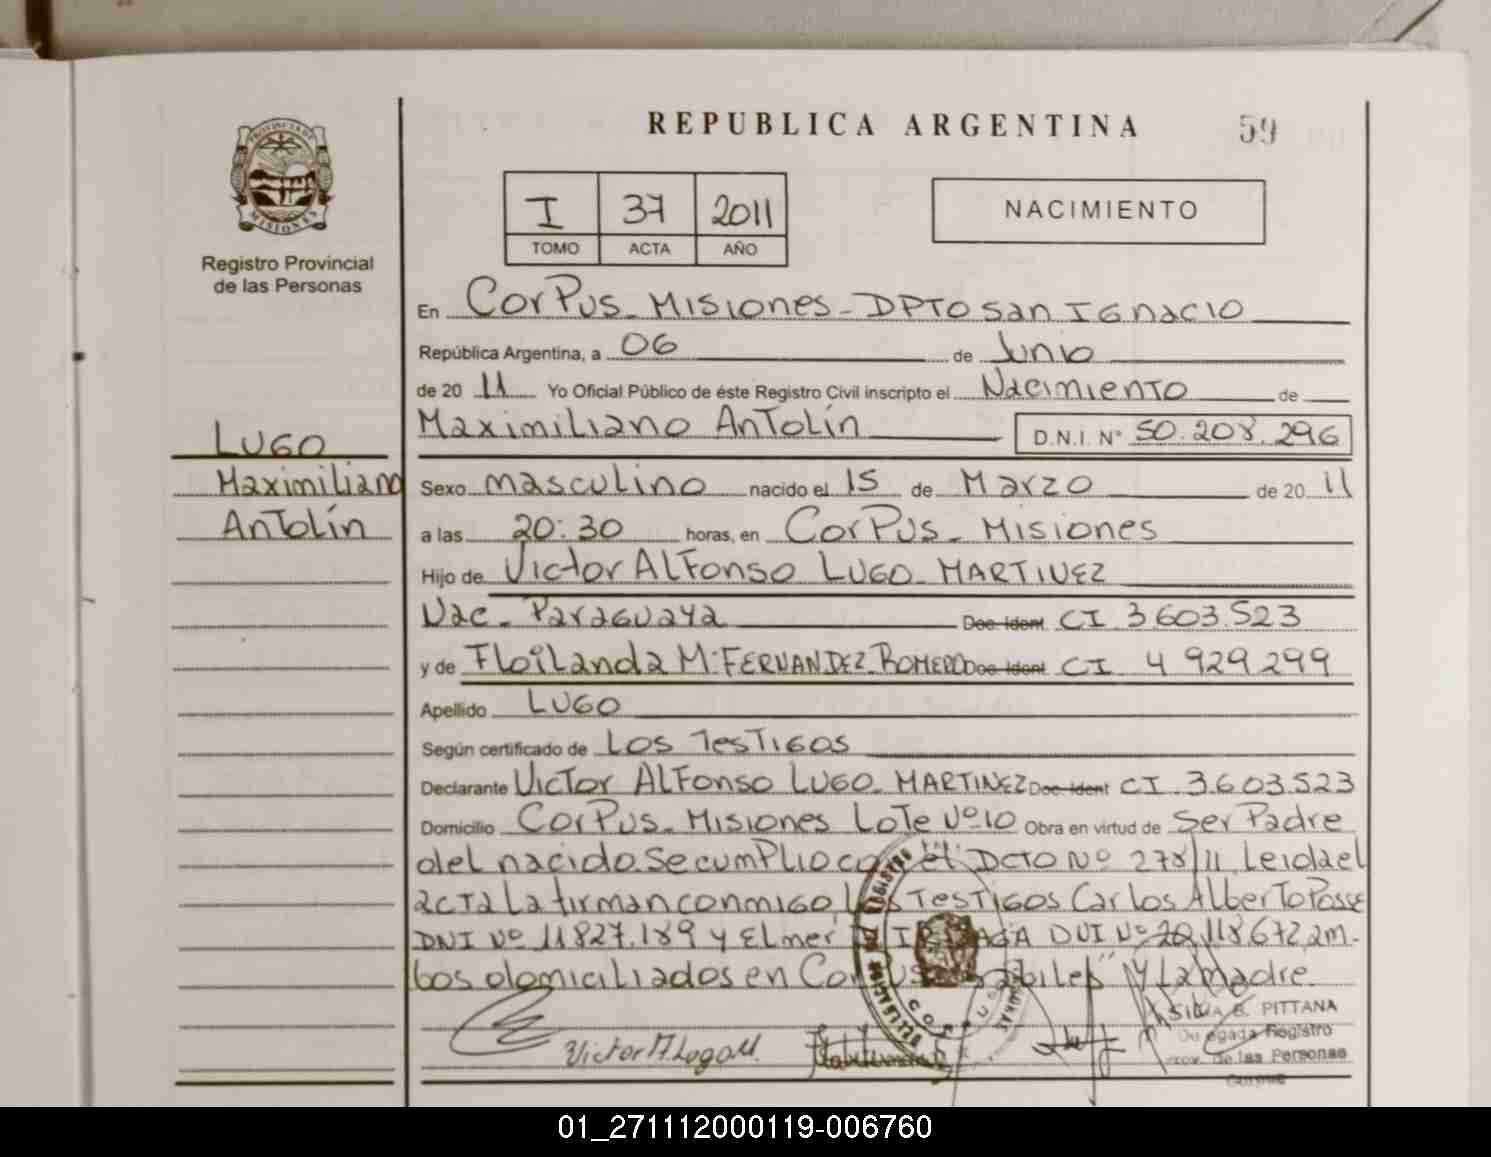 REPUBLICA ARGENTINA
59
PROVINCIA DE MISIONES
Registro Provincial
de las Personas
I 37 2011
TOMO ACTA AÑO
NACIMIENTO
En Corpus - Misiones - DPTO San Ignacio
República Argentina, a 06 de Junio
de 20 11 Yo Oficial Público de éste Registro Civil inscripto el Nacimiento de
Maximiliano Antolín D.N.I. N° 50.208.296
LUGO
Maximiliano
Antolín
Sexo masculino nacido el 15 de Marzo de 20 11
a las 20:30 horas, en Corpus - Misiones
Hijo de Victor Alfonso LUGO - MARTINEZ
Nac - Paraguaya Doc. Ident CI 3603.523
y de Floilanda M. FERNANDEZ - ROMERO Doc. Ident CI 4 929 299
Apellido LUGO
Según certificado de Los Testigos
Declarante Victor Alfonso LUGO - MARTINEZ Doc. Ident CI. 3.603.523
Domicilio Corpus - Misiones Lote Nº 10 Obra en virtud de Ser Padre
del nacido. Se cumplio con el DCTO Nº 278/11 Leida el
acta La firman conmigo, Los Testigos Carlos Alberto Posse
DNI Nº 11827.189 y Elmer DNI Nº 20.118.672, am-
bos domiciliados en Corpus "y la Madre.
Victor A. Lugo M.
SILVIA B. PITTANA
Delegada Registro
Prov. de las Personas
Corpus
DELEGACION DEL REGISTRO
CORPUS
01_271112000119-006760